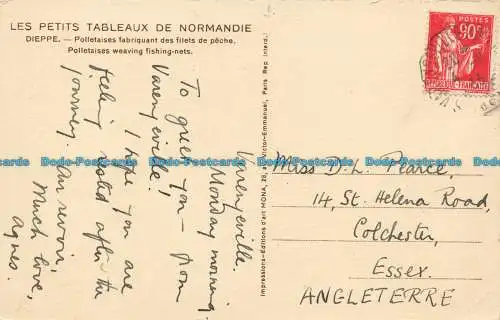 LES PETITS TABLEAUX DE NORMANDIE
DIEPPE. — Polletaises fabriquant des filets de pêche.
Polletaises weaving fishing-nets.
Varengeville.
Monday morning
To greet you — from
Varengeville!
I hope you are
feeling rested after the
journey. Au revoir,
Much love,
Agnes.
Impressions-Editions d'art MONA, 28, Victor-Emmanuel, Paris Rep. interd.
POSTES
90c
REPUBLIQUE FRANÇAISE
Miss D. L. Pearce,
14, St. Helena Road,
Colchester,
Essex.
ANGLETERRE
Dodo-Postcards Dodo-Postcards Dodo-Postcards Dodo-Postcards